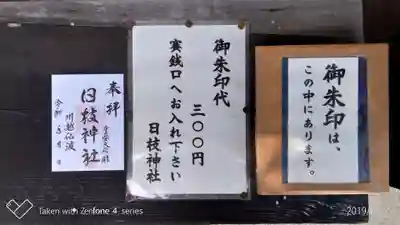 御朱印は、
この中にあります。
御朱印代
三〇〇円
賽銭口へお入れ下さい
日枝神社
奉拝
日枝神社
川越仙波
令和
Taken with Zenfone 4 series
2019